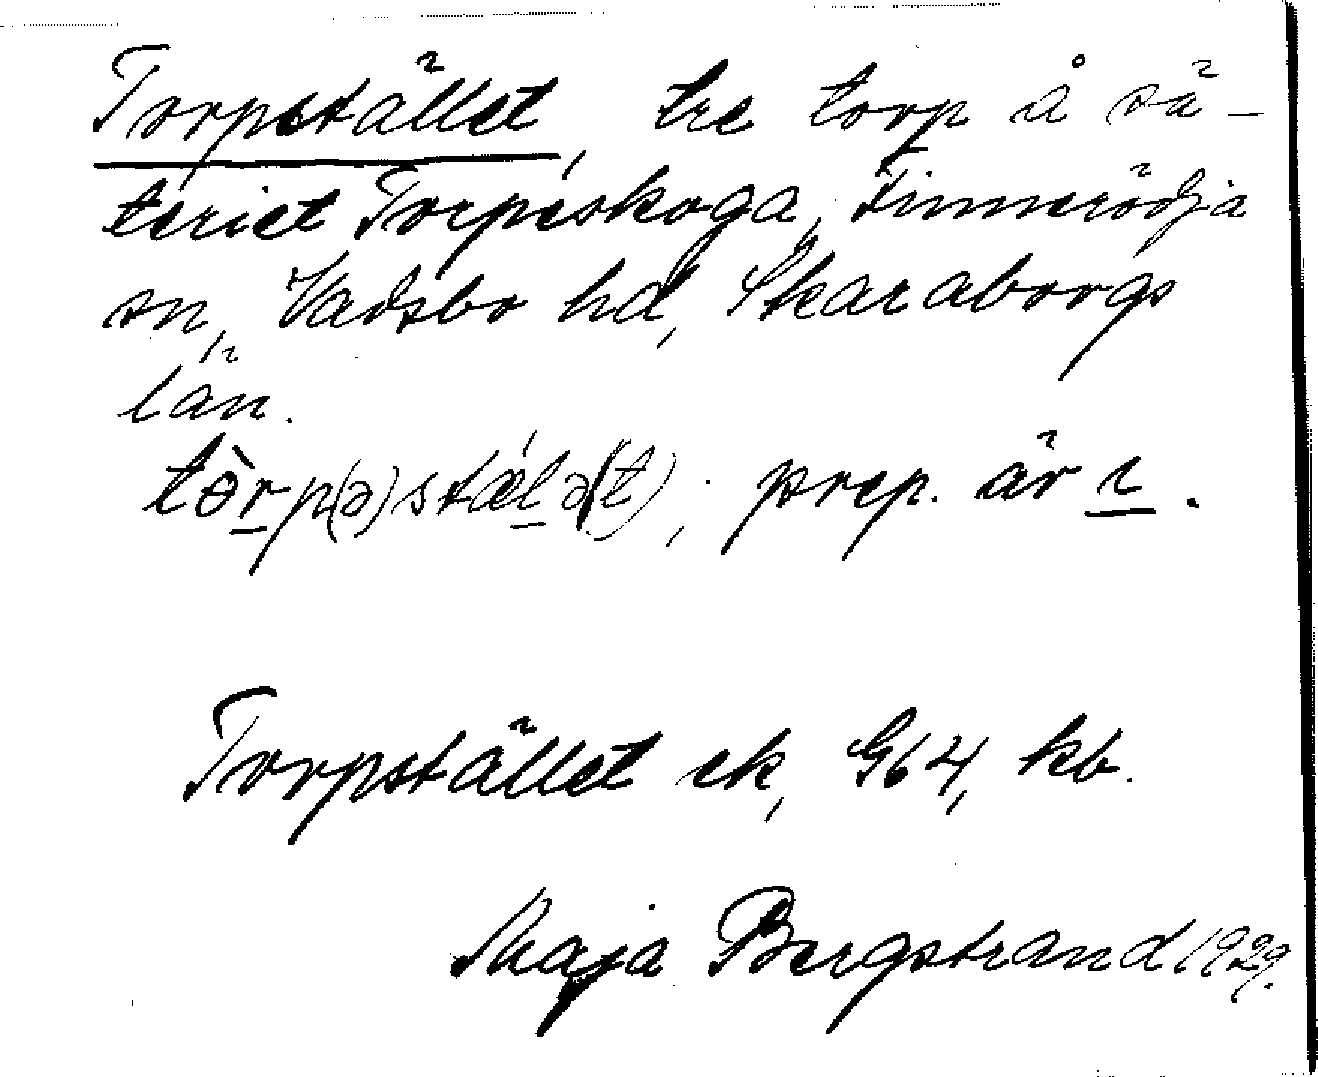 Torpstället, tre torp å sä-
teriet Torpeskoga, Finnerödja
sn, Vadsbo hd, Skaraborgs
län.
tòrp(ə)stǽlə(t); prep. är ı.
Torpstället ek, G64, kb.
Maja Bergstrand 1929.